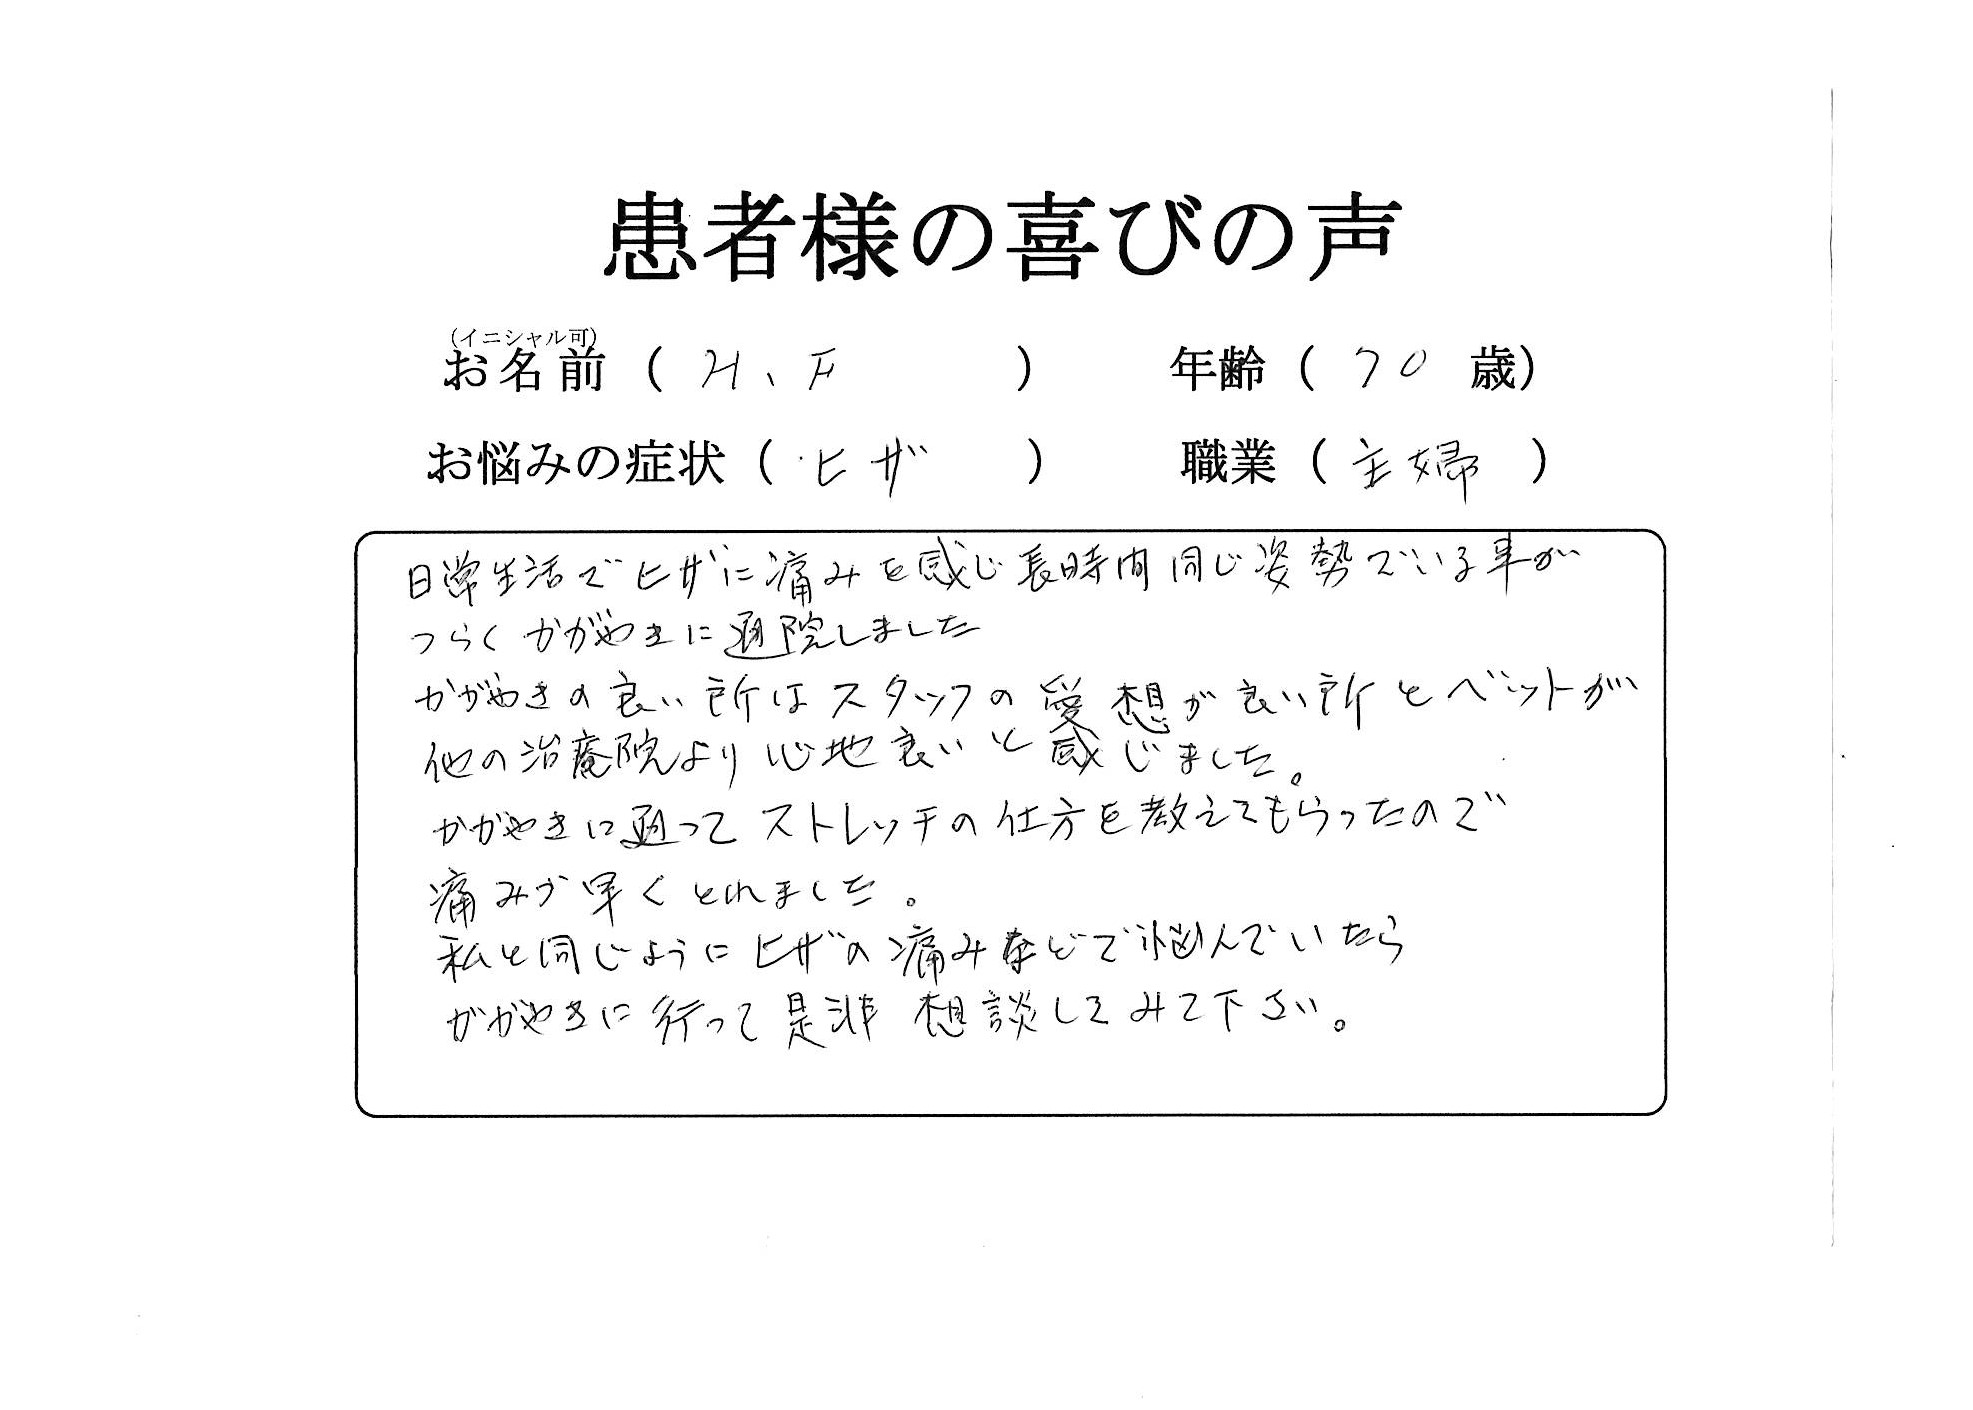 患者様の喜びの声
(イニシャル可)
お名前 ( H、F ) 年齢 ( 70 歳)
お悩みの症状 ( ヒザ ) 職業 ( 主婦 )
日常生活でヒザに痛みを感じ長時間同じ姿勢でいる事が
つらくかがやきに通院しました
かがやきの良い所はスタッフの愛想が良い所とベットが
他の治療院より心地良いと感じました。
かがやきに通ってストレッチの仕方を教えてもらったので
痛みが早くとれました。
私と同じようにヒザの痛みなどで悩んでいたら
かがやきに行って是非想談してみて下さい。